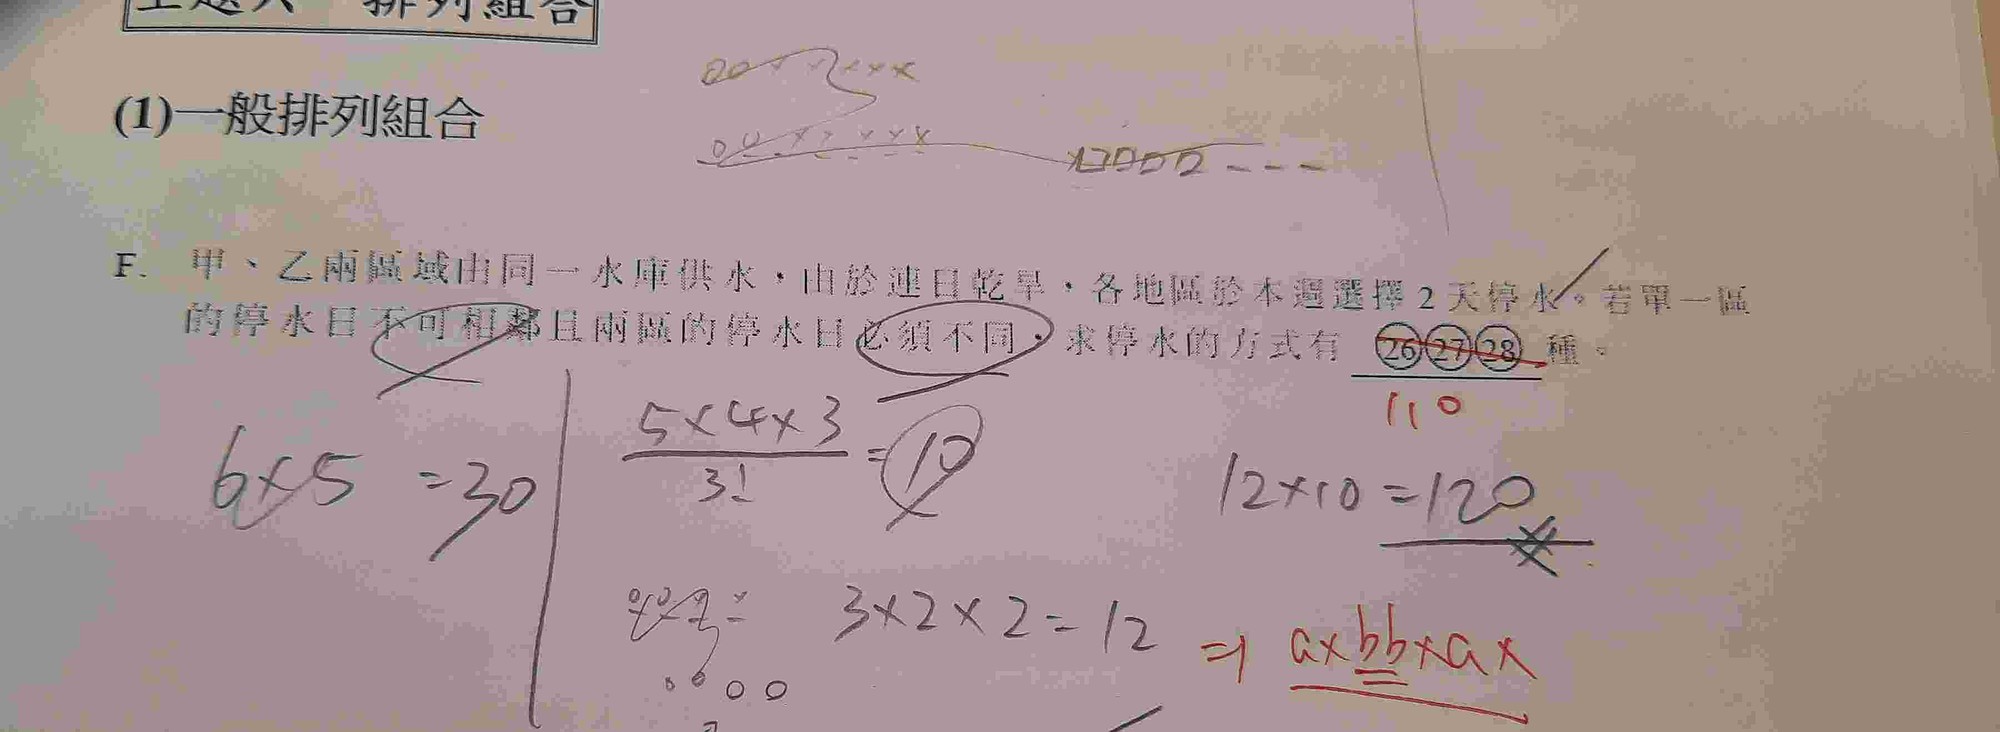 排列組合
(1)一般排列組合
F. 甲、乙兩區域由同一水庫供水,由於連日乾旱,各地區於本週選擇2天停水。若單一區
的停水日不可相鄰且兩區的停水日必須不同,求停水的方式有 ㉖㉗㉘ 種。
110
6×5 =30
5×4×3
3!
=10
12×10=120
3×2×2=12
⇒ a×bb×a×